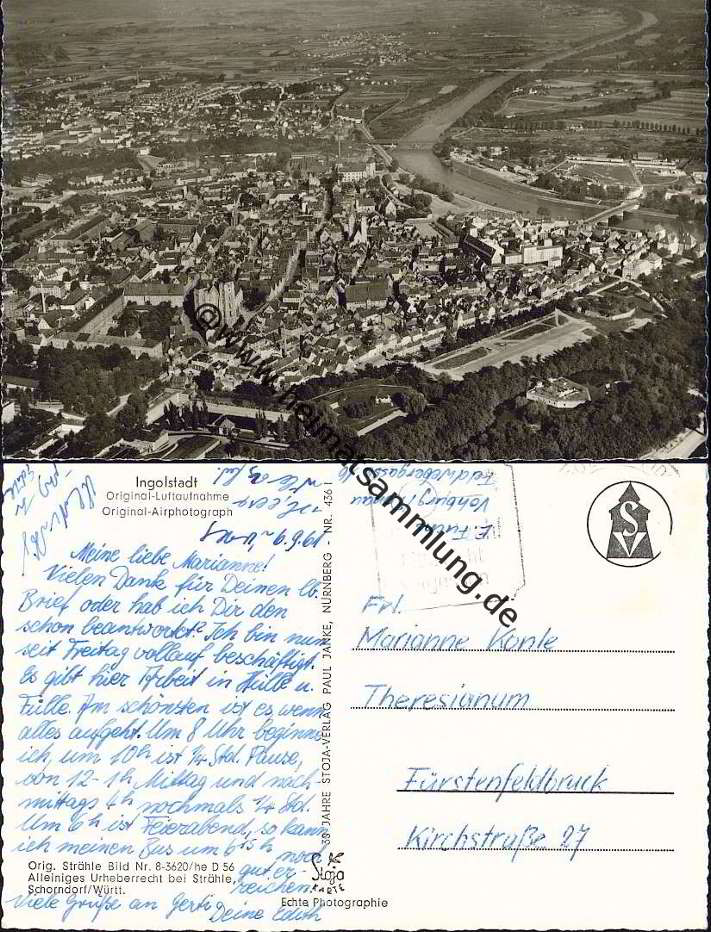 @www.heimatsammlung.de
Ingolstadt
Original-Luftaufnahme
Original-Airphotograph
6.9.61
Meine liebe Marianne!
Vielen Dank für Deinen lb.
Brief oder hab ich Dir den
schon beantwortet? Ich bin nun
seit Freitag vollauf beschäftigt.
Es gibt hier Arbeit in Hülle u.
Fülle. Am schönsten ist es wenn
alles aufgeht. Um 8 Uhr beginne
ich, um 10h ist 1/4 Std. Pause,
von 12-1h Mittag und nach-
mittags 4h nochmals 1/4 Std.
Um 6h ist Feierabend, so kann
ich meinen Bus um 6 15 h
noch
gut er-
reichen.
Viele Grüße an Gerti
Deine Edith
Orig. Strähle Bild Nr. 8-3620/he D 56
Alleiniges Urheberrecht bei Strähle,
Schorndorf/Württ.
30 JAHRE STOJA-VERLAG PAUL JANKE, NÜRNBERG - NR. 436 I
Stoja
KARTE
Echte Photographie
Vohburg/Donau
SV
Frl.
Marianne Konle
Theresianum
Fürstenfeldbruck
Kirchstraße 27